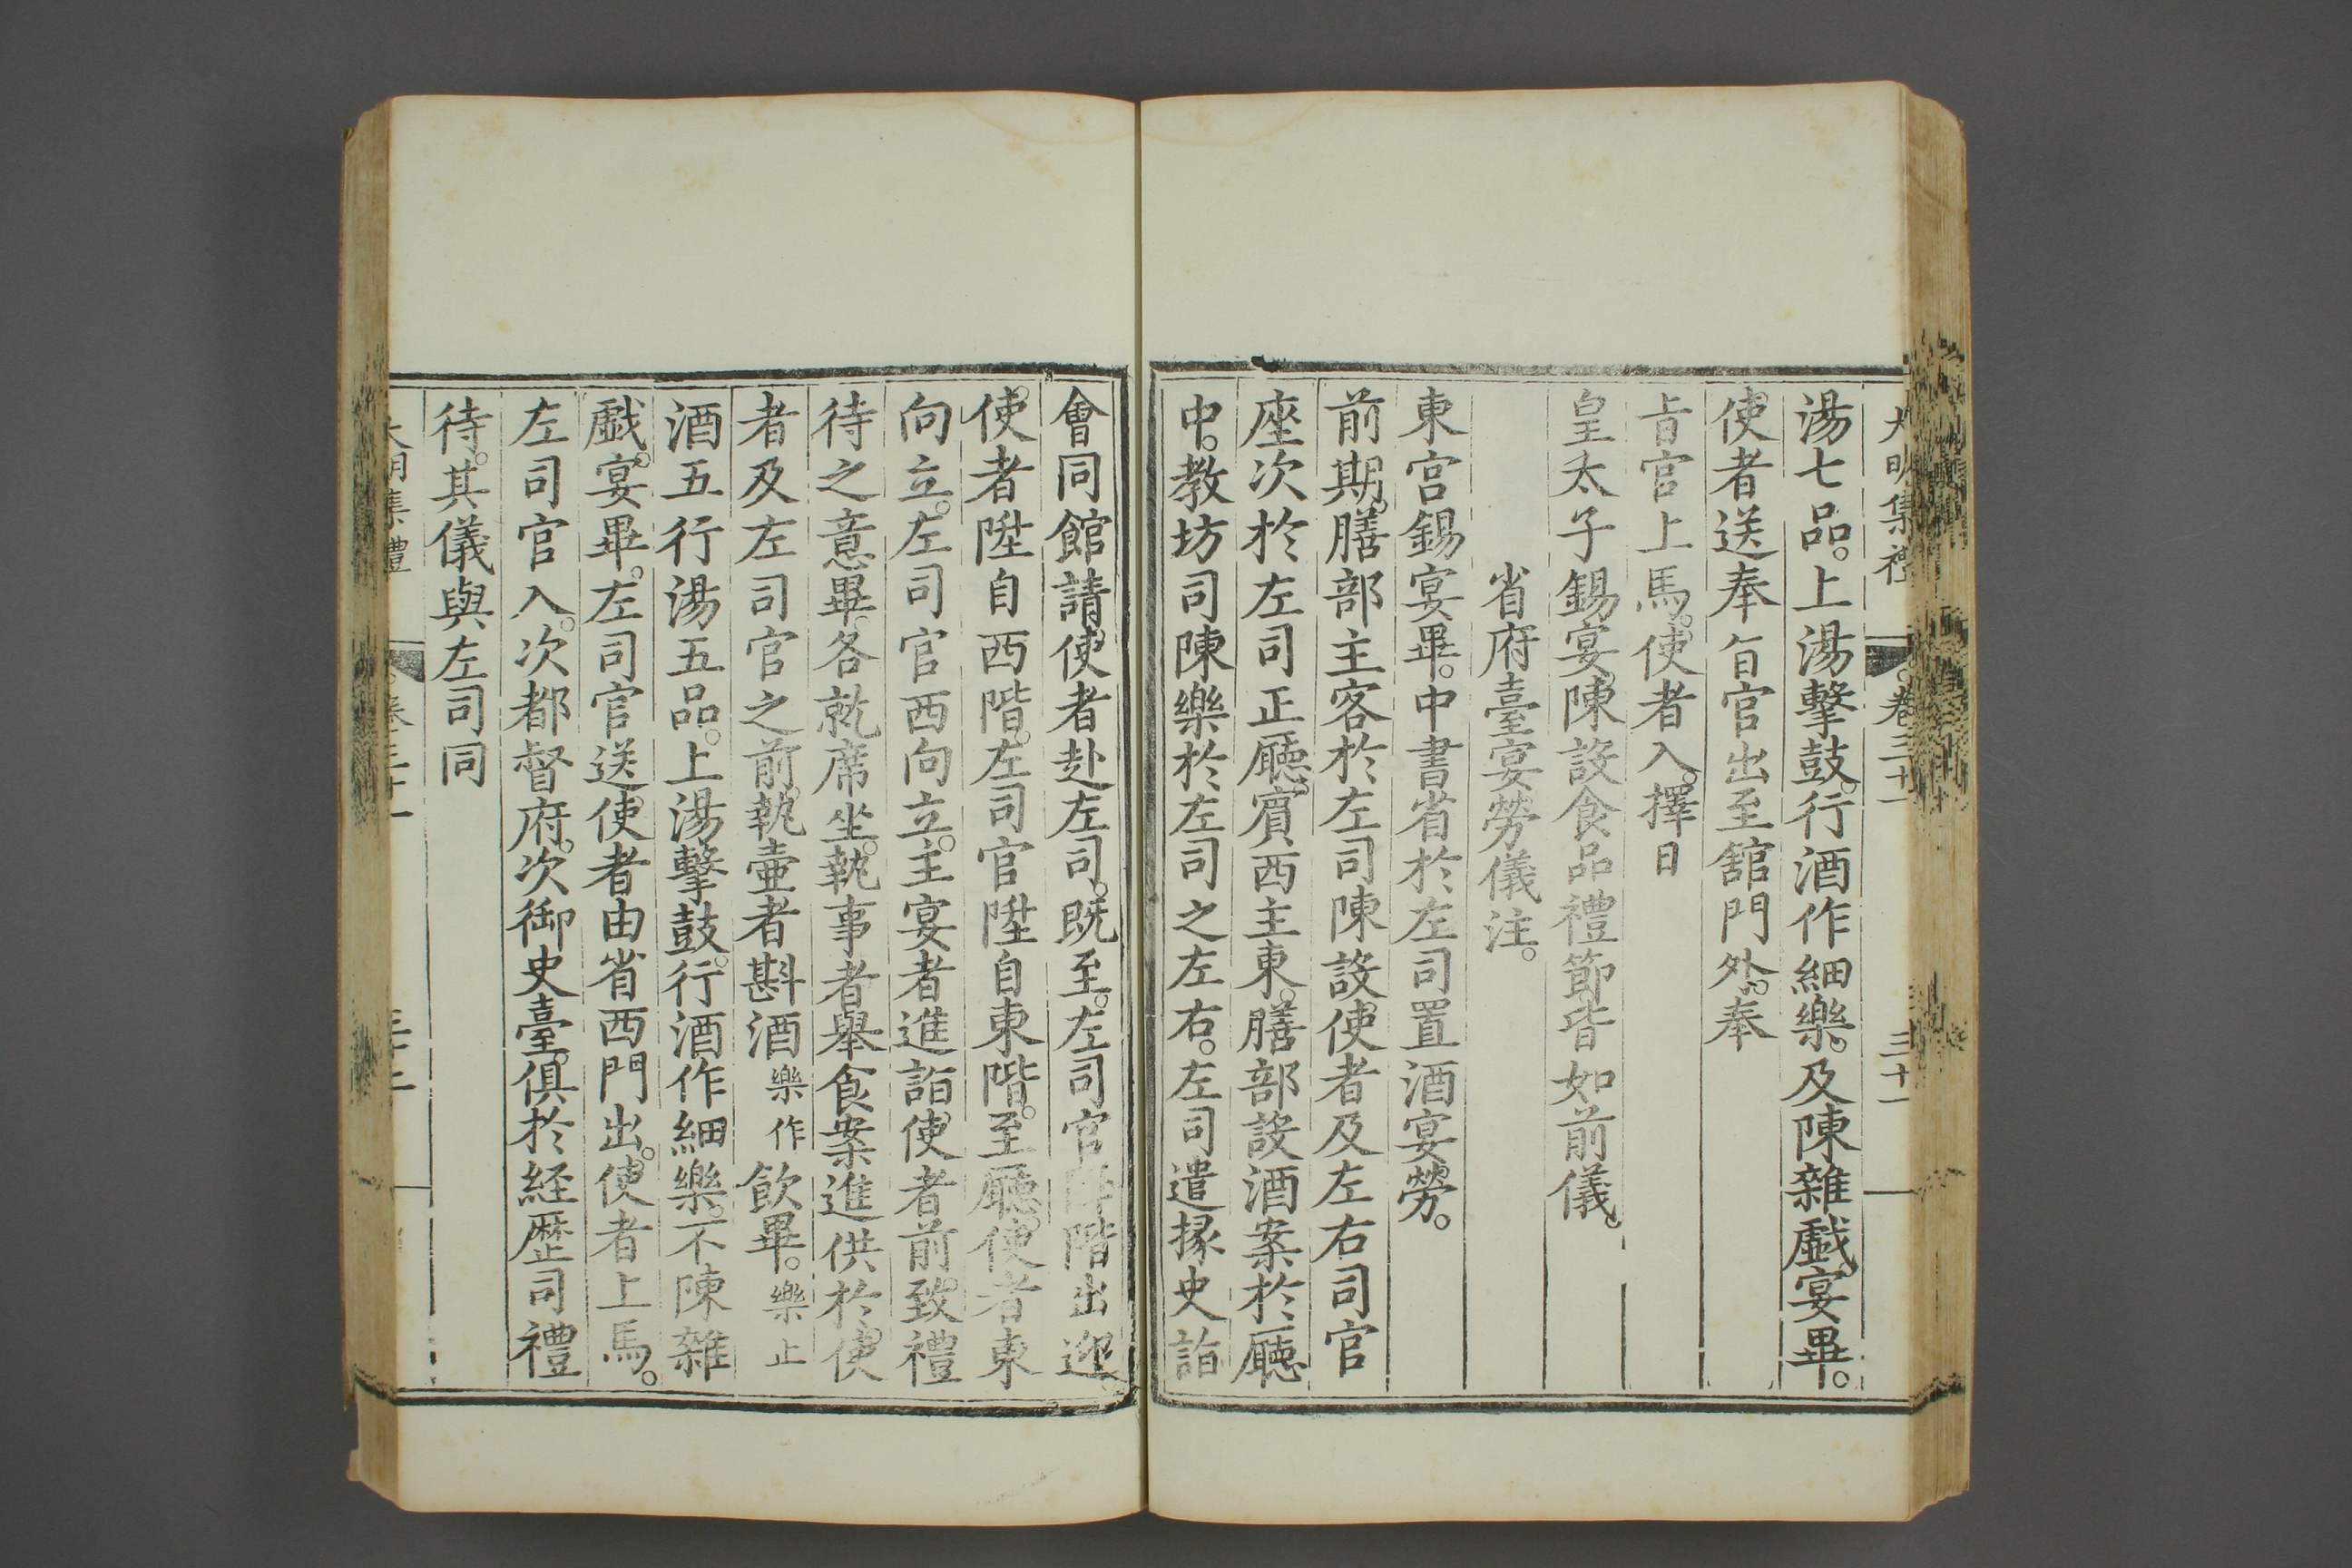 大明集禮 卷三十一 三十一
湯七品。上湯擊鼓。行酒作細樂。及陳雜戯。宴畢。
使者送奉㫖官出至舘門外。奉
㫖官上馬。使者入。擇日
皇太子錫宴。陳設食品禮節。皆如前儀。
省府臺宴勞儀注。
東宫錫宴畢。中書省於左司置酒宴勞。
前期。膳部主客於左司陳設。使者及左右司官
座次於左司正廳。賓西主東。膳部設酒案於廳
中。教坊司陳樂於左司之左右。左司遣掾史詣
會同館請使者赴左司。既至。左司官降階出迎。
使者陞自西階。左司官陞自東階。至廳。使者東
向立。左司官西向立。主宴者進詣使者前。致禮
待之意畢。各就席坐。執事者舉食案進供於使
者及左司官之前。執壷者斟酒樂作飲畢。樂止
酒五行湯五品。上湯擊鼓。行酒作細樂。不陳雜
戯。宴畢。左司官送使者由省西門出。使者上馬。
左司官入。次都督府。次御史臺。俱於経歷司禮
待。其儀與左司同
大明集禮 卷三十一